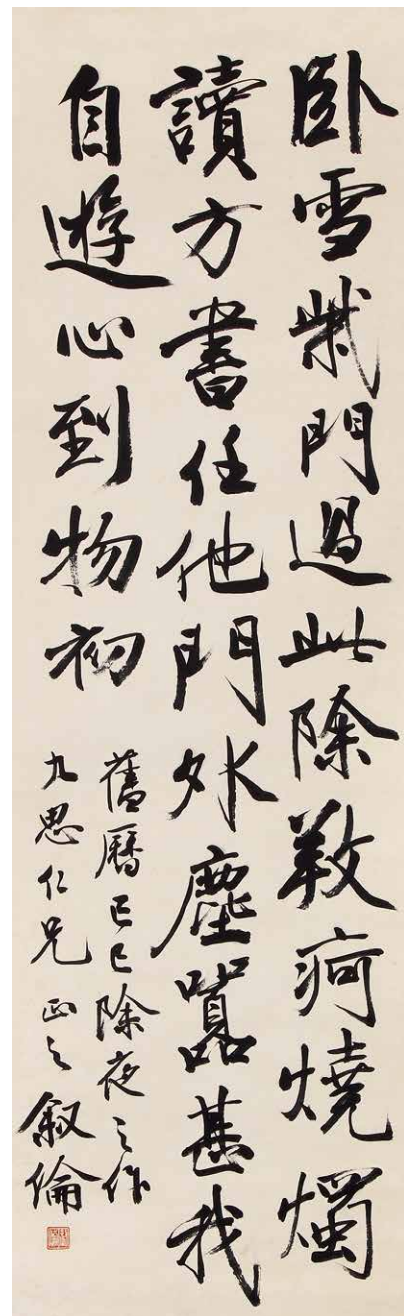 卧雪柴門過此除救痾燒燭
讀方書任他門外塵囂甚我
自遊心到物初
舊曆己巳除夜之作
九思仁兄正之 叙倫